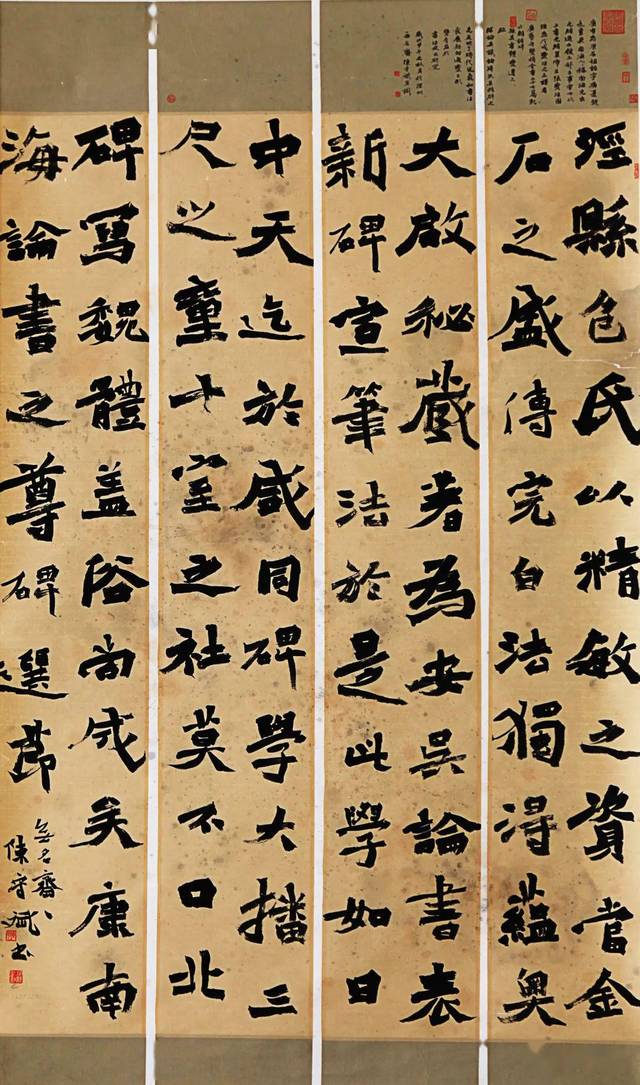 涇縣包氏以精敏之資當金
石之盛傳完白法獨得蘊奧
大啟秘藏著為安吳論書表
新碑宣筆法於是此學如日
中天迄於咸同碑學大播三
尺之童十室之社莫不口北
碑寫魏體盖俗尚成矣康南
海論書之尊碑選節
無名齋
陳守斌書